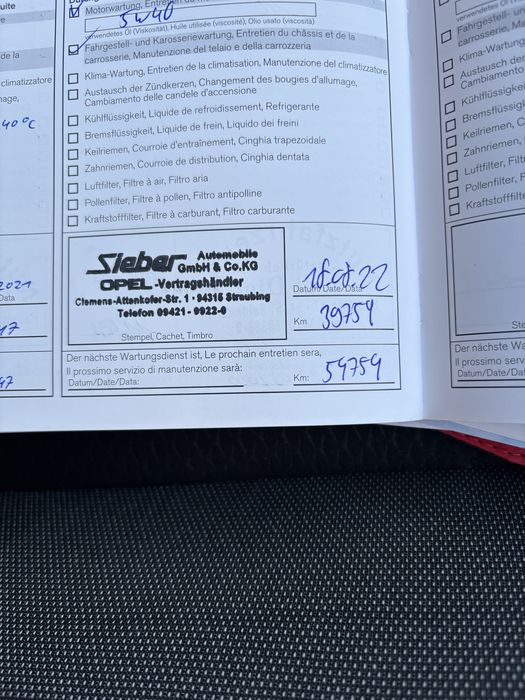 uite
e
de la
climatizzatore
mage,
40°C
2021
Data
17
97
Motorwartung, Entretien
5W40
verwendetes Öl (Viskosität), Huile utilisée (viscosité), Olio usato (viscosità)
Fahrgestell- und Karosseriewartung, Entretien du châssis et de la
carrosserie, Manutenzione del telaio e della carrozzeria
Klima-Wartung, Entretien de la climatisation, Manutenzione del climatizzatore
Austausch der Zündkerzen, Changement des bougies d'allumage,
Cambiamento delle candele d'accensione
Kühlflüssigkeit, Liquide de refroidissement, Refrigerante
Bremsflüssigkeit, Liquide de frein, Liquido dei freini
Keilriemen, Courroie d'entraînement, Cinghia trapezoidale
Zahnriemen, Courroie de distribution, Cinghia dentata
Luftfilter, Filtre à air, Filtro aria
Pollenfilter, Filtre à pollen, Filtro antipolline
Kraftstofffilter, Filtre à carburant, Filtro carburante
Sieber Automobile
GmbH & Co.KG
OPEL-Vertragshändler
Clemens-Attenkofer-Str. 1 · 94315 Straubing
Telefon 09421 - 9922-0
Stempel, Cachet, Timbro
Datum/Date/Data
Km 39754
Der nächste Wartungsdienst ist, Le prochain entretien sera,
Il prossimo servizio di manutenzione sarà:
Datum/Date/Data:
Km: 59754
verwendetes Öl
Fahrgestell- und
carrosserie, Man
Klima-Wartung
Austausch der
Cambiamento
Kühlflüssigkeit
Bremsflüssig
Keilriemen, C
Zahnriemen,
Luftfilter, Filt
Pollenfilter, F
Kraftstofffilte
Ste
Der nächste Wa
Il prossimo serv
Datum/Date/Da